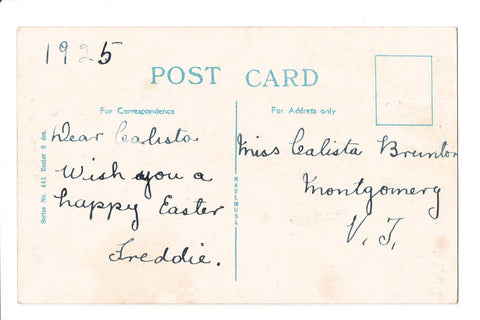 1925
POST CARD
For Correspondence
For Address only
Dear Calista
Wish you a
happy Easter
Freddie.
Miss Calista Brunton
Montgomery
V. T.
Series No. 441 Easter 6 des.
MADE IN USA